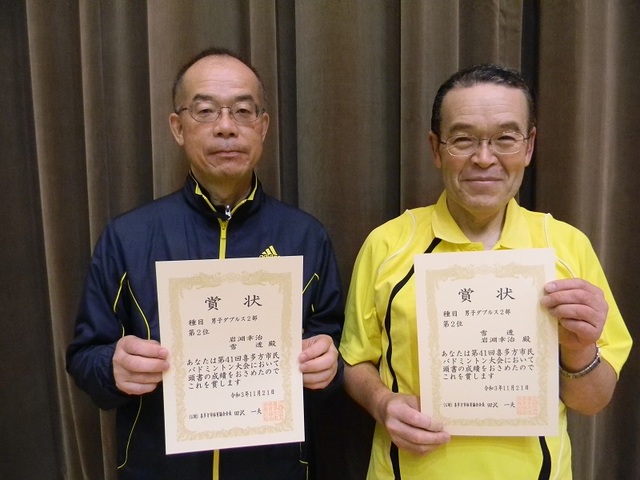 賞状
種目 男子ダブルス2部
第2位
岩渕幸治
雷 透 殿
あなたは第41回喜多方市民
バドミントン大会において
頭書の成績をおさめたので
これを賞します
令和3年11月21日
田沢 一夫
賞状
種目 男子ダブルス2部
第2位
雷 透
岩渕幸治 殿
あなたは第41回喜多方市民
バドミントン大会において
頭書の成績をおさめたので
これを賞します
令和3年11月21日
田沢 一夫